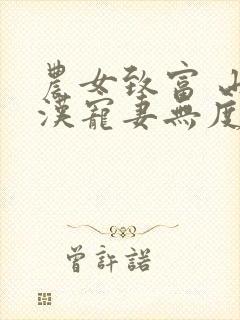 農女致富 山
漢寵妻無度
曾許諾